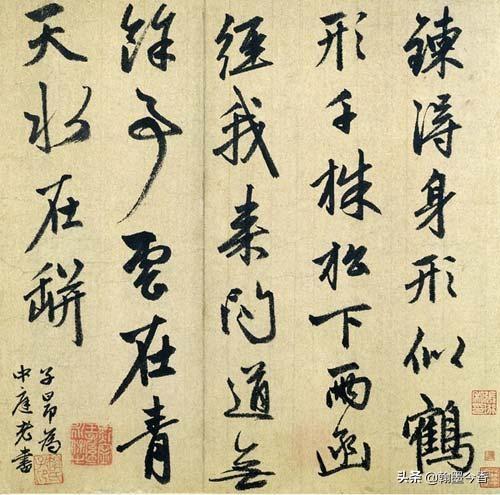 鍊得身形似鶴
形千株松下兩函
經我来問道無
餘事雲在青
天水在缾
子昂為
中庭老書
头条 @翰墨今香